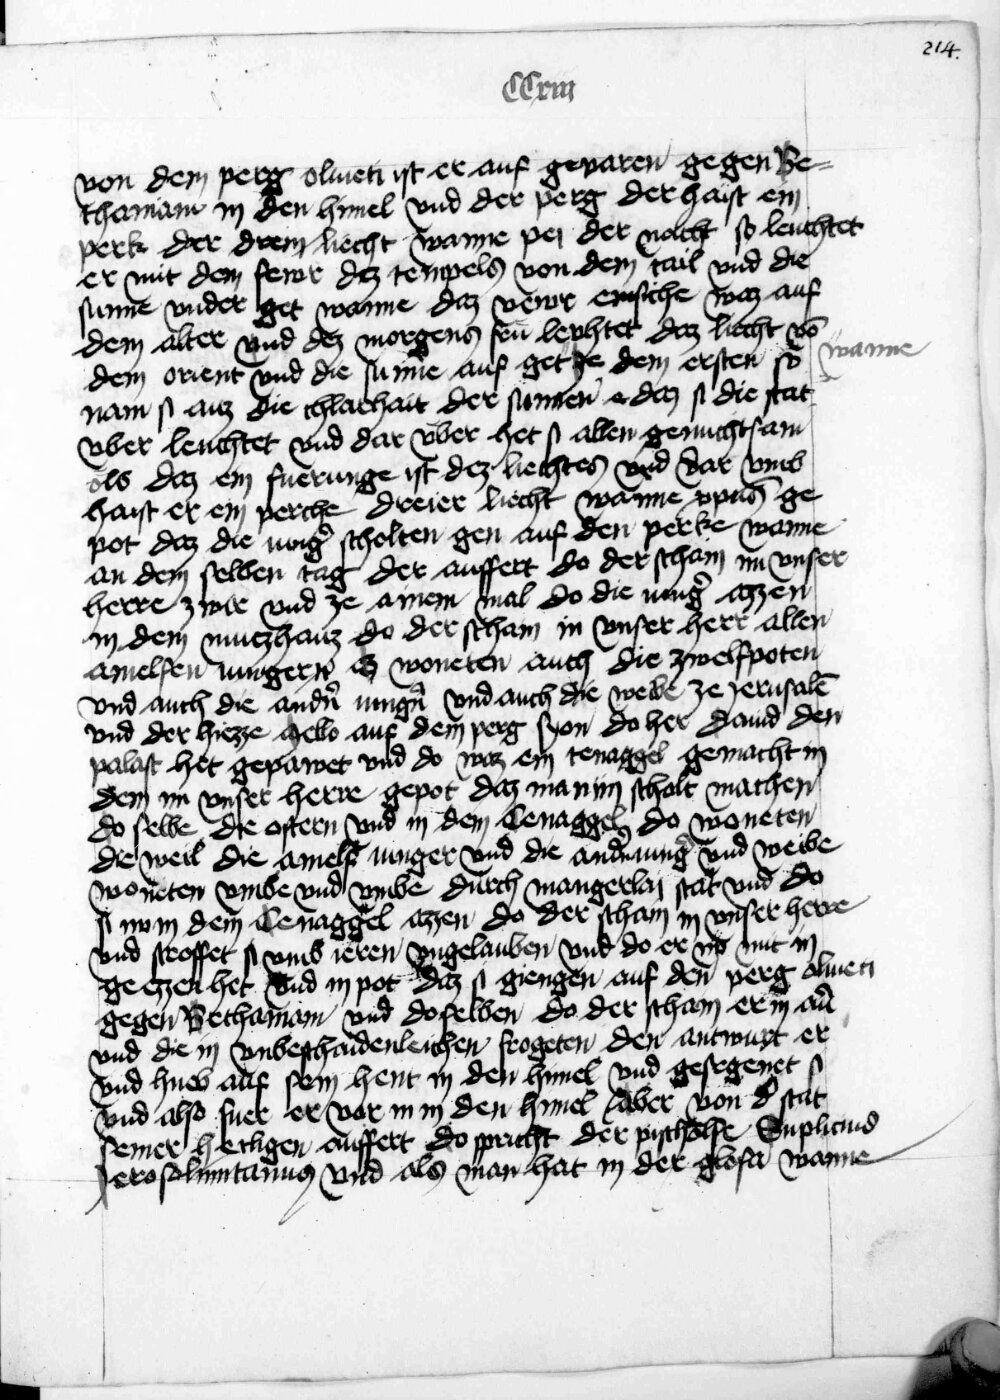 214.
CCxiii
von dem perg oliueti ist er auf geuaren gegen Be=
thaniam in den himel vnd der perg der haist ein
perk der drein liecht wanne pei der nacht so leuchtet
er mit dem fewr dez tempels von dem tail vnd die
sunne vnder get wanne daz vewr emsiche waz auf
dem alter vnd dez morgens fru leuhtet daz liecht võ
dem orient vnd die sunne auf get ze dem ersten so wanne
nam si auz die chlarhait der sunnen e daz si die stat
vber leuchtet vnd dar vber het si allen genuchtsam
ols daz ein fuerunge ist dez liechtes vnd dar vmb
haist er ein perche dreier liecht wanne xpus ge
pot daz die iung̃ scholten gen auf den perke wanne
an dem selben tag der auffert do der schain im vnser
herre zwir vnd ze ainem mal do die iung̃ azzen
in dem muezhauz do der scham in vnser herr allen
ainelfen iungern Ez woneten auch die zwelfpoten
vnd auch die andñ iungñ vnd auch die weibe ze Jerusalẽ
vnd der hiezze Mello auf dem perg syon do her dauid den
palast het gepawet vnd do waz ein cenaggel gemacht in
dem im vnser herre gepot daz man im scholt machen
do selbe die ostern vnd in dem Cenaggel do woneten
die weil die ainelf iunger vnd die andñ iung̃ vnd weibe
woneten vmbe vnd vmbe durch mangerlaj stat vnd do
si nv in dem Cenaggel azzen do der scham in vnser herre
vnd stroffet si vmb ieren vngelauben vnd do er nv mit in
geezzen het Vnd in pot daz si giengen auf den perg oliueti
gegen Bethaniam vnd doselben do der scham er in aũ
vnd die in vnbeschaidenleichen frogeten den antwurt er
vnd hueb auf sein hent in den himel vnd gesegenet si
vnd also fuer er vor in in den himel Aber von d̾ stat
seiner heiligen auffert do spricht der pischolfe Suplicius
Jerosolimitanus vnd als man hat in der glosa wanne